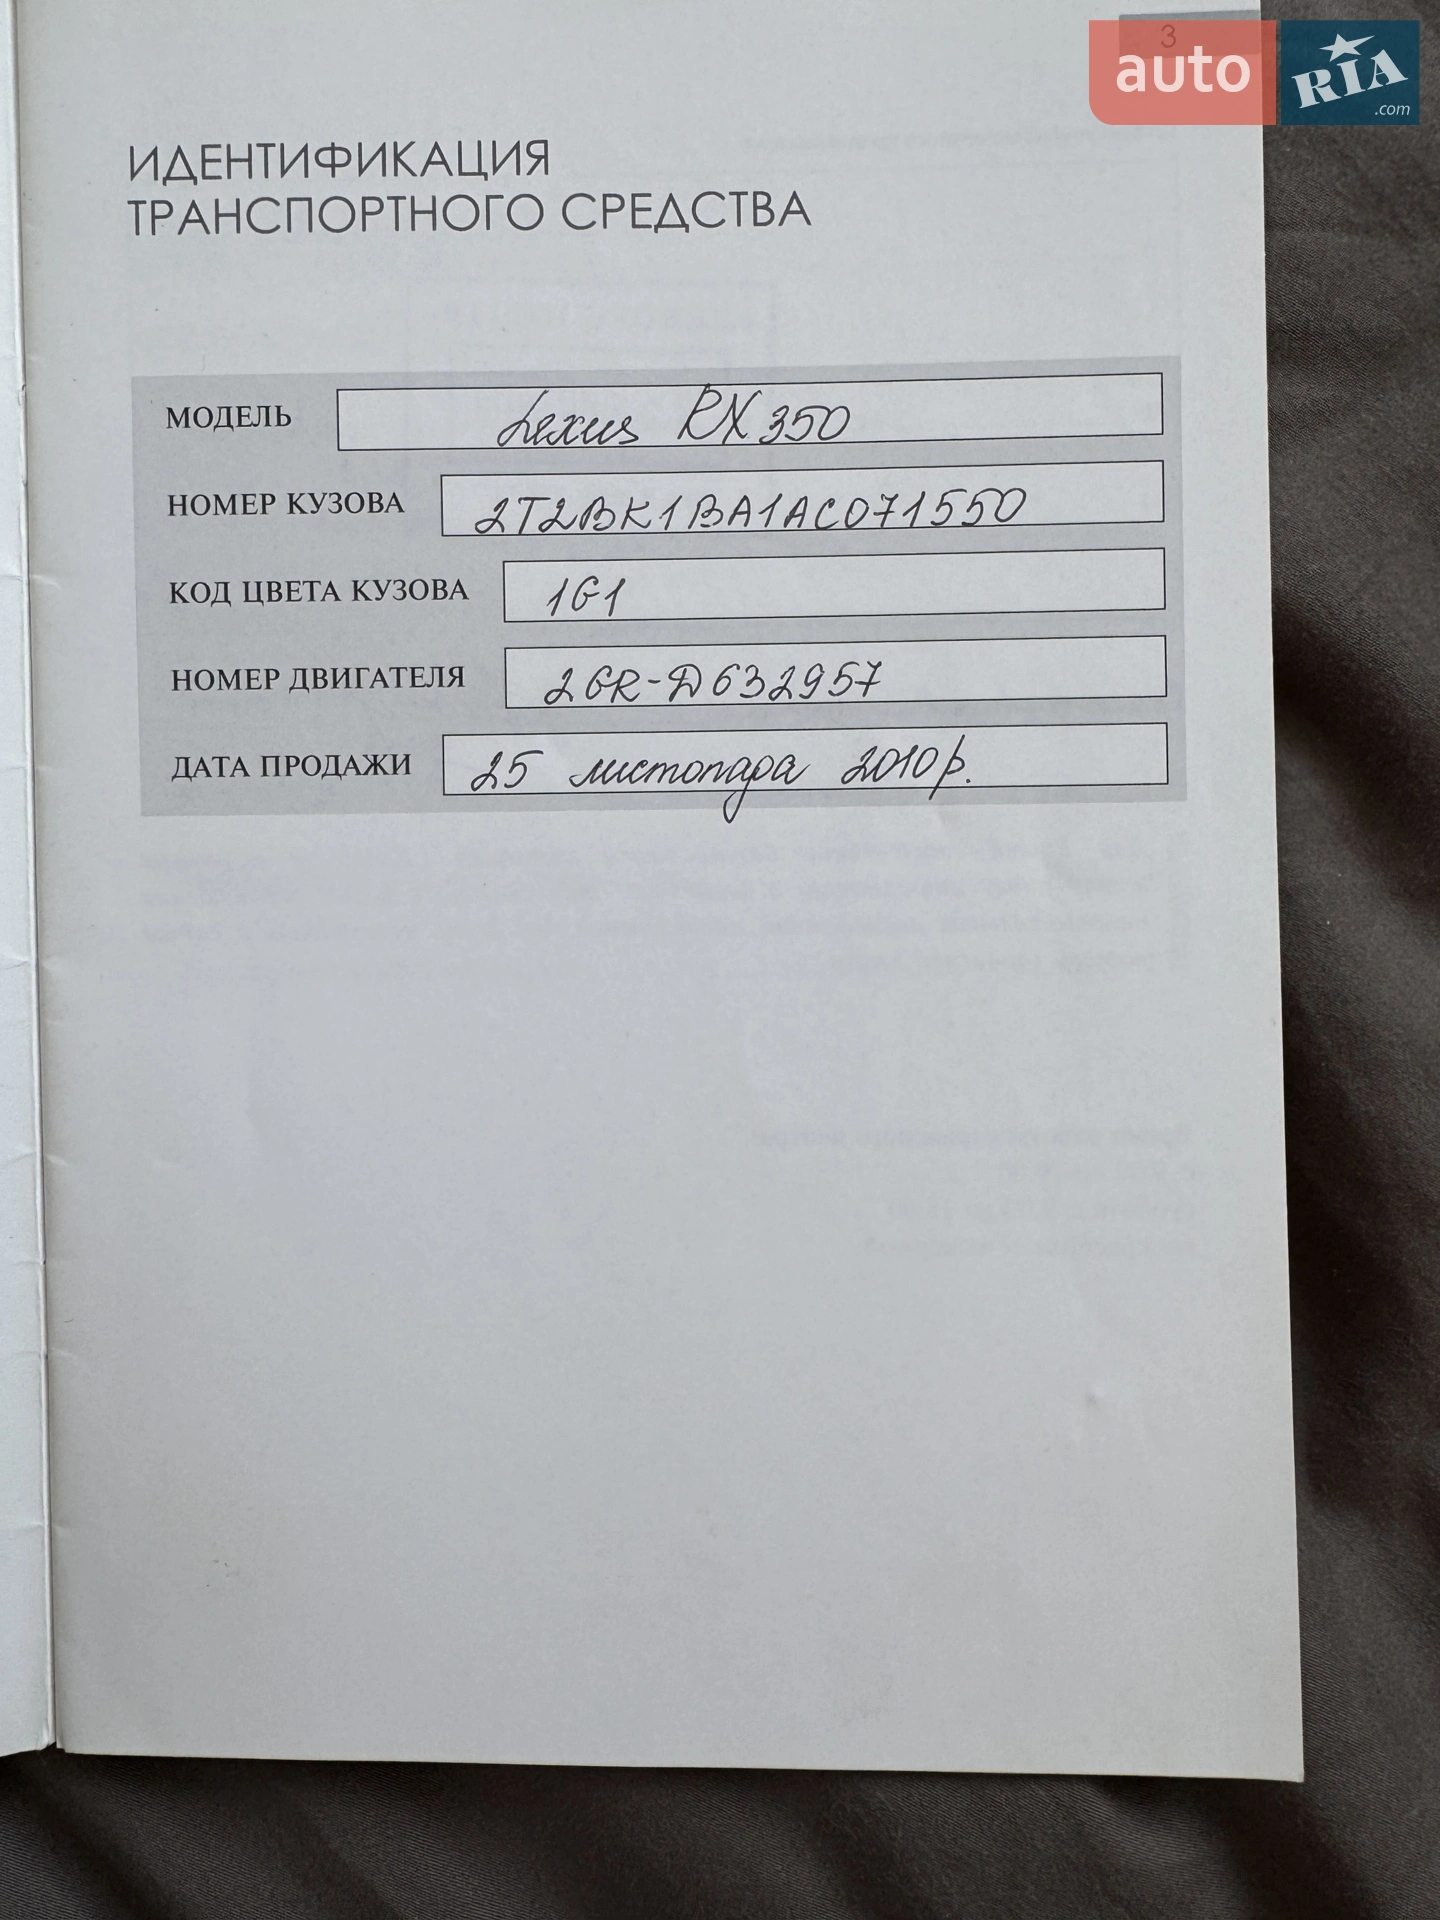 3
auto RIA.com
ИДЕНТИФИКАЦИЯ
ТРАНСПОРТНОГО СРЕДСТВА
МОДЕЛЬ Lexus RX 350
НОМЕР КУЗОВА 2T2BK1BA1AC071550
КОД ЦВЕТА КУЗОВА 1G1
НОМЕР ДВИГАТЕЛЯ 2GR-D632957
ДАТА ПРОДАЖИ 25 листопада 2010р.